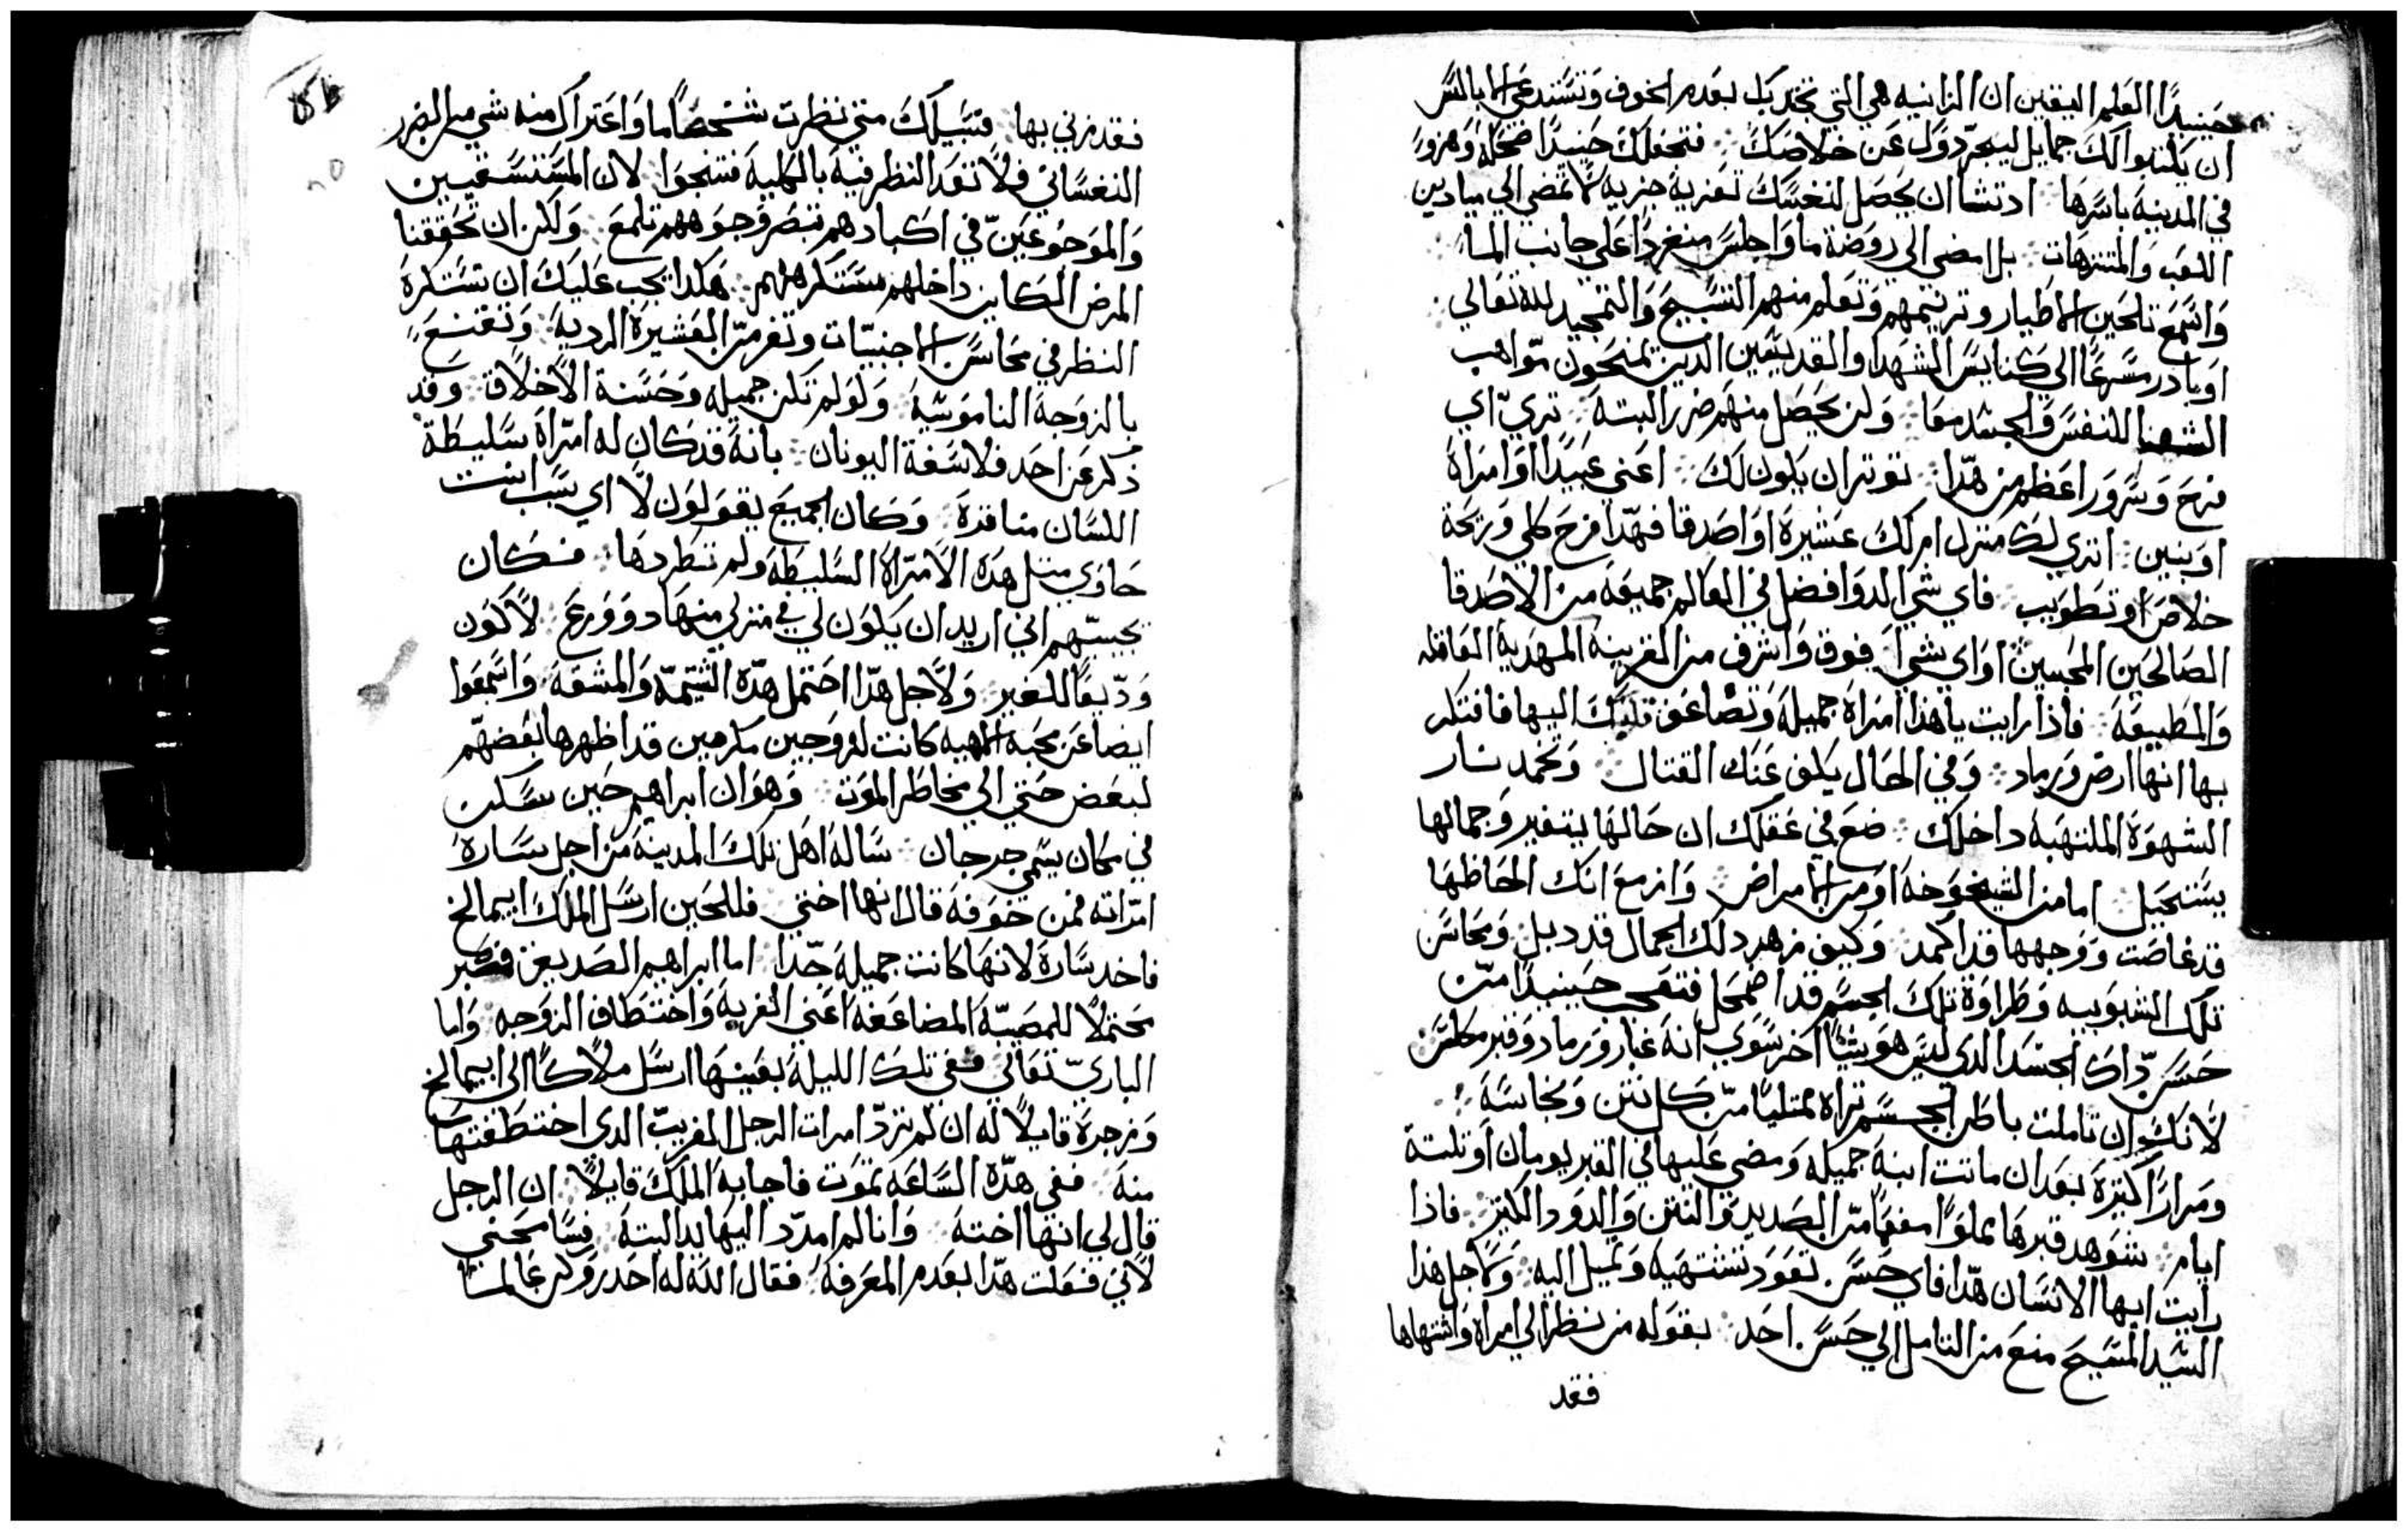 حينيدًا العلم اليقين ان الزانيه هي التي تجدبك بعدم الخوف وتستدعي الابالسَّ
ان يكتبوا لك جمايل ليبحرّدوَك عن خلاصك فتجعلك حنيدًا ضحكة وهزو
في المدينة باسرها ادتشا ان يحصل لنفسك تعزية حزيه لا تمضي الي ميادين
اللعب والمتنزهات بل امضي الي روضة ما واجلس منفردًا علي جانب الما
واسمع تلحين الاطيار وترنيمهم وتعلم منهم التسبيح والتمجيد لله تعالي
او بادر مسرعًا الي كنايس الشهدا والقديسين الدين يمنحون مواهب
الشفا للنفس والجسد معا ولن يحصل منهم ضرر البته تري اي
فرح وسرور اعظم من هدا توتر ان يكون لك اعني عبيدًا او امراة
او بنين اتري لك منزل ام لك عشيرة او اصدقا فهدا فرح كلي وربحة
خلاص او تطويب فاي شي الدوا فضل في العالم جميعه من الاصدقا
الصالحين المحبين او اي شيا فوق واشرف من القرينه المهدية العاقله
والمطيعة فاذا رايت يا هذا امراة جميلة وتضاعف قلبك اليها فافتكر
بها انها ارض ورماد وفي الحال يكف عنك القتال وتخمد نار
الشهوة الملتهبة داخلك ضع في عقلك ان حالها يتغير وجمالها
يستحيل اما من الشيخوخة او من الامراض وازمع انك الحاظها
قد غاصت ووجهها قد اكمد وكيف زهر دلك الجمال قد دبل ومحاسن
تلك الشبوبيه وطراوة تلك الجسم قد اضمحل فتعجب حينيدًا من
حسن داك الجسد الدي ليس هو شيًا اخر سوي انه غبار ورماد وقبر مكلس
لانك ان تاملت باطن الجسم تراه ممتليًا من كل نتن ونجاسة
ومرارًا كتيرة بعد ان ماتت ابنة جميله ومضي عليها في القبر يومان او تلتة
ايام شوهد قبرها مملوًا مفعمًا من الصديد والنتن والدود الكتير فاذا
رايت ايها الانسان هدا فاي حسن تعود تشتهيه وتميل اليه ولاجل هذا
السيد المسيح منع من التامل الي حسن احد بقوله من نظر الي امراة واشتهاها
فقد
فقد زني بها فسبيلك متي نظرت شخصًا ما واعتراك منه شي من الضرر
النفساني فلا تعد النظر فيه بالكلية فتنجوا لان المستسقيين
والموجوعين في اكبادهم تبصر وجوههم تلمع ولكن ان تحققنا
المرض الكاين داخلهم نستكرههم هكدا يجب عليك ان تستكره
النظر في محاسن الاجنبيات وتفر من العشيرة الردية وتقتنع
بالزوجة الناموسية ولو لم تكن جميله وحسنة الاخلاق وقد
دكر عن احد فلاسفة اليونان بانه قد كان له امراة سليطة
اللسان منافرة وكان الجميع يقولون لاي سبب انت
حاوي متل هده الامراة السليطة ولم تطردها فكان
يجيبهم اني اريد ان يكون لي في منزلي منها دو ورع لاكون
وديعًا للغير ولاجل هدا احتمل هده الشتمة والمشقة واسمعوا
ايضا عن محبة الهيه كانت لزوجين مكرمين قد اظهرها بعضهم
لبعض حتي الي مخاطر الموت وهو ان ابراهيم حين سكن
في مكان يسمي جرجان ساله اهل تلك المدينة من اجل سارة
امراته فمن خوفه قال انها اختي فللحين ارسل الملك ابيمالخ
فاخد سارة لانها كانت جميلة جدا اما ابراهيم الصديق فصبر
محتملًا للمصيبة المضاعفة اعني الغربة واختطاف الزوجه واما
الباري تعالي ففي تلك الليلة بعينها ارسل ملاكًا الي ابيمالخ
وزجره قايلًا له ان لم ترد امرات الرجل الغريب الدي اختطفتها
منه ففي هده الساعة تموت فاجابه الملك قايلًا ان الرجل
قال لي انها اخته وانا لم امد اليها يد البتة فسامحني
لاني فعلت هدا بعدم المعرفة فقال الله له احدر وكن عالمًا